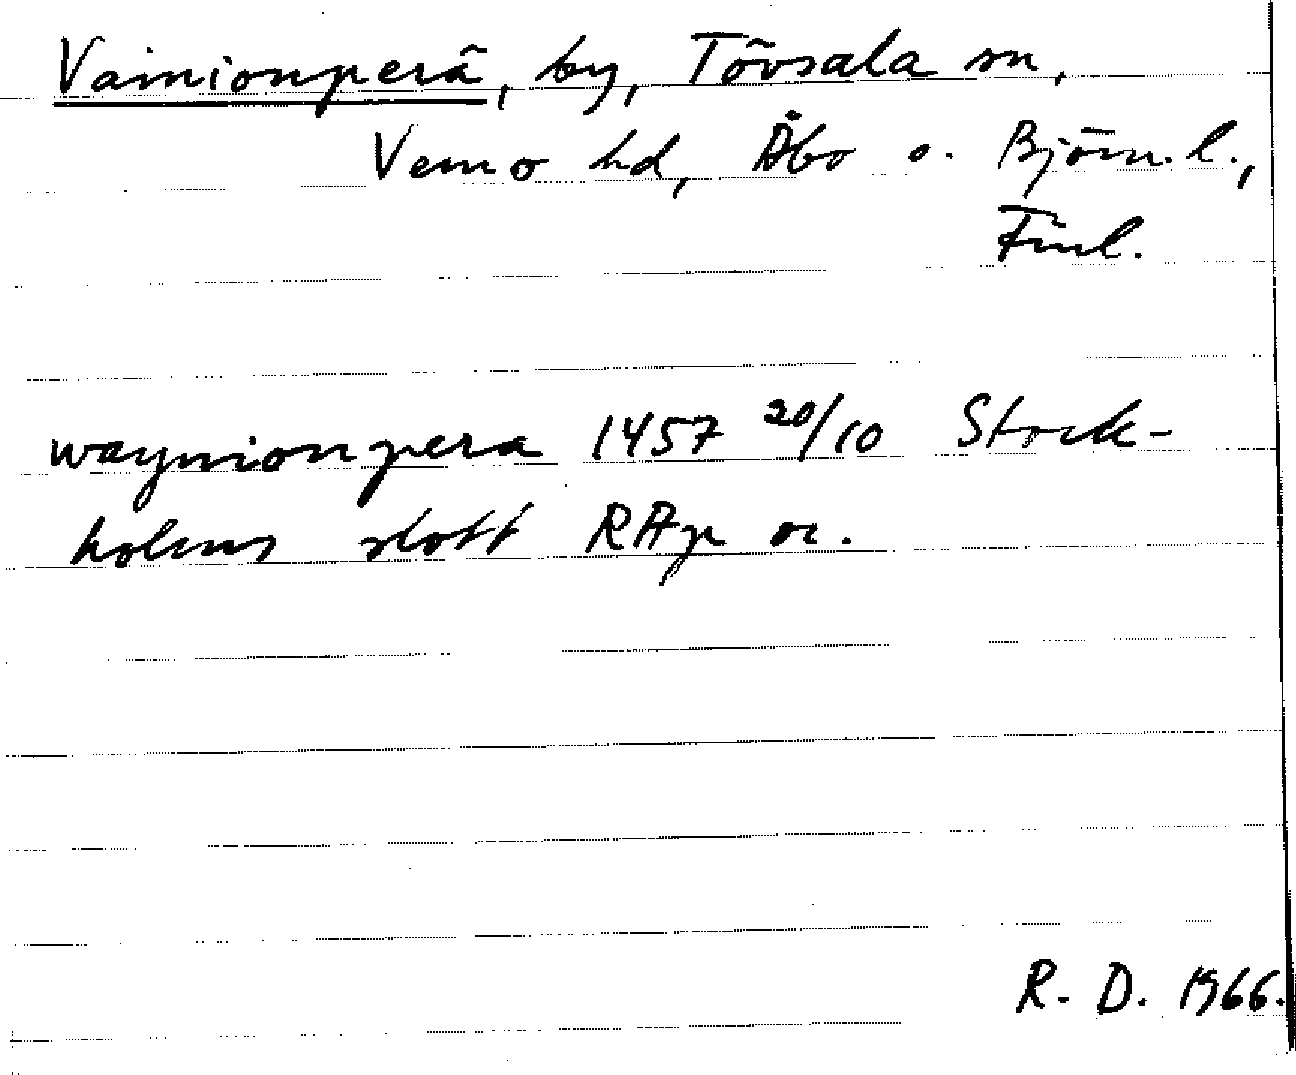 Vainionperä, by, Tövsala sn,
Vemo hd, Åbo o. Björn. l.,
Finl.
waynionpera 1457 20/10 Stock-
holms slott RAp or.
R. D. 1966.